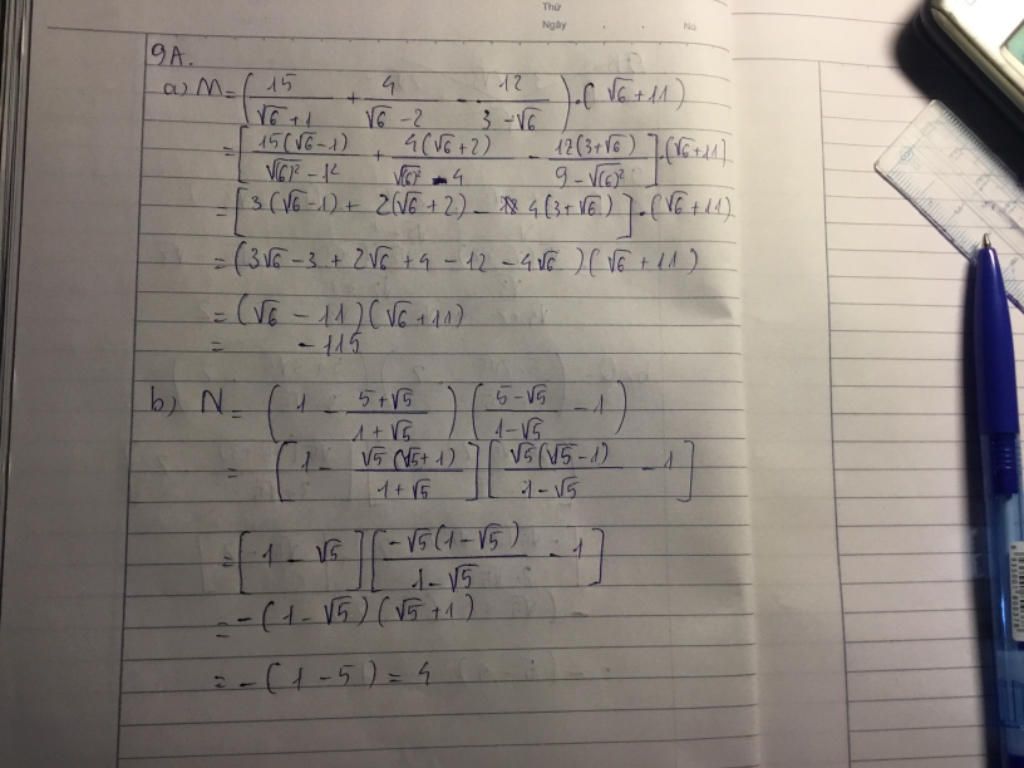 Thứ
Ngày . . No
9A.
a) M = (15/(√6+1) + 4/(√6-2) - 12/(3-√6)).(√6+11)
= [15(√6-1)/(√(6)² - 1²) + 4(√6+2)/(√(6)² - 4) - 12(3+√6)/(9-√(6)²)].(√6+11)
= [3(√6-1) + 2(√6+2) - 4(3+√6)].(√6+11)
= (3√6-3 + 2√6 + 4 - 12 - 4√6)(√6+11)
= (√6 - 11)(√6+11)
= -115
b) N = (1 - (5+√5)/(1+√5))((5-√5)/(1-√5) - 1)
= [1 - √5(√5+1)/(1+√5)][√5(√5-1)/(1-√5) - 1]
= [1 - √5][-√5(1-√5)/(1-√5) - 1]
= -(1-√5)(√5+1)
= -(1-5) = 4